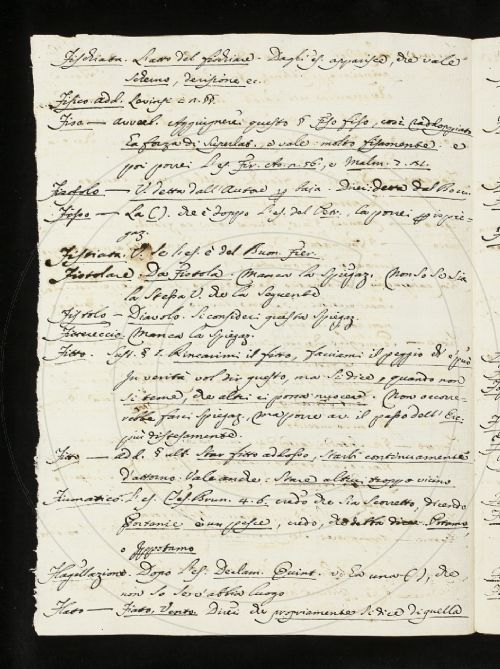 Fischiata. L'atto del fischiare. Dagli es. apparisce, che vale
scherno, derisione ec.
Fisico add.
Fiso — avverb. Aggiugnerei questo § Fiso fiso, così raddoppiato
ha forza di Superlat., e vale molto fisamente. e
poi porrei l'es. Fir. As. n. 56, e Malm. 7.
Fistolo — V. detta dall'Autore per baia. Direi: detta dal Bocc.
Fisso — La (), che è doppo l'es. del Petr., la porrei
gaz.
Fistiata. V. Io l'es. è del Buon. Fier.
Fistolare. Da Fistola. Manca la Spiegaz. Non so se sia
la stessa V. che la Seguente
Fistolo — Diavolo. Si consideri questa Spiegaz.
Manca la Spiegaz.
Fitto. Sust. § 1. Rincarimi il fitto, facciami il peggio ch' e' può
In verità vol dir questo, ma si dice, quando non
si teme, che altri ci possa nuocere. Non occor-
rerebbe farci Spiegaz., ma porre av. il passo dell' Erc.
più distesamente.
Fitto — add. § ult. Star fitto addosso, Starli continuamente
d'attorno. Vale anche: Stare altrui troppo vicino
Fiumatico. L'es. 4. 6. credo che sia scorretto, dicendo
è un pesce, credo,
o Ippotamo
Flagellazione. Dopo l'es. Declam. Quint. v'è una (), che
non so se v'abbia luogo
Flato — Fiato, Vento. Direi che propriamente si dice di quella